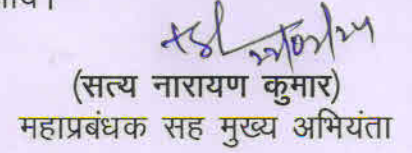 22/02/24
(सत्य नारायण कुमार)
महाप्रबंधक सह मुख्य अभियंता